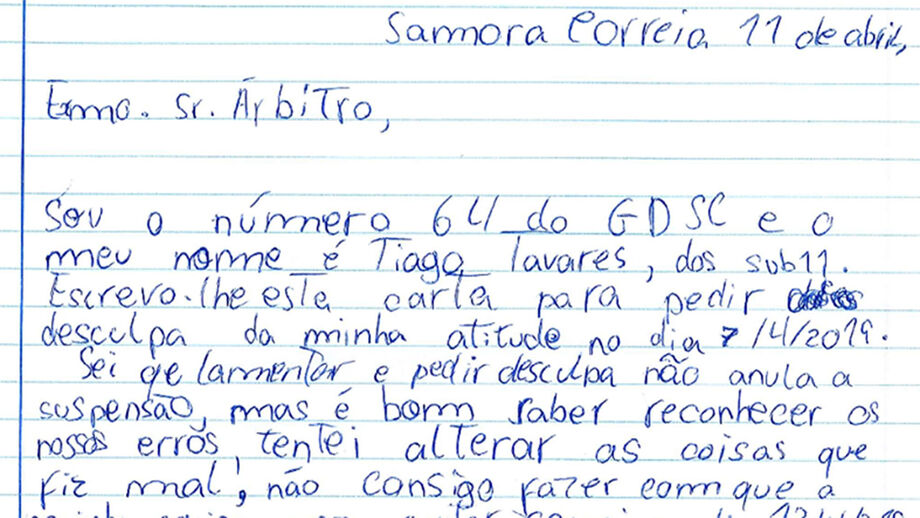 Samora Correia 11 de abril,
Exmo. Sr. Árbitro,
Sou o número 64 do GDSC e o
meu nome é Tiago Tavares, dos sub11.
Escrevo-lhe esta carta para pedir
desculpa da minha atitude no dia 7/4/2019.
Sei qe lamentar e pedir desculpa não anula a
suspensão, mas é bom saber reconhecer os
nossos erros, tentei alterar as coisas que
fiz mal, não consigo fazer com que a